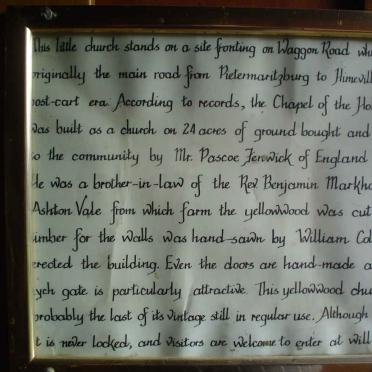 This little church stands on a site fronting on Waggon Road
originally the main road from Pietermaritzburg to
post-cart era. According to records, the Chapel of the
was built as a church on 24 acres of ground bought and
to the community by Mr. Pascoe Fenwick of England
He was a brother-in-law of the Rev Benjamin
Ashton Vale from which farm the yellowwood was cut
timber for the walls was hand-sawn by William
erected the building. Even the doors are hand-made
lych gate is particularly attractive. This yellowwood
probably the last of its vintage still in regular use. Although
it is never locked, and visitors are welcome to enter at will